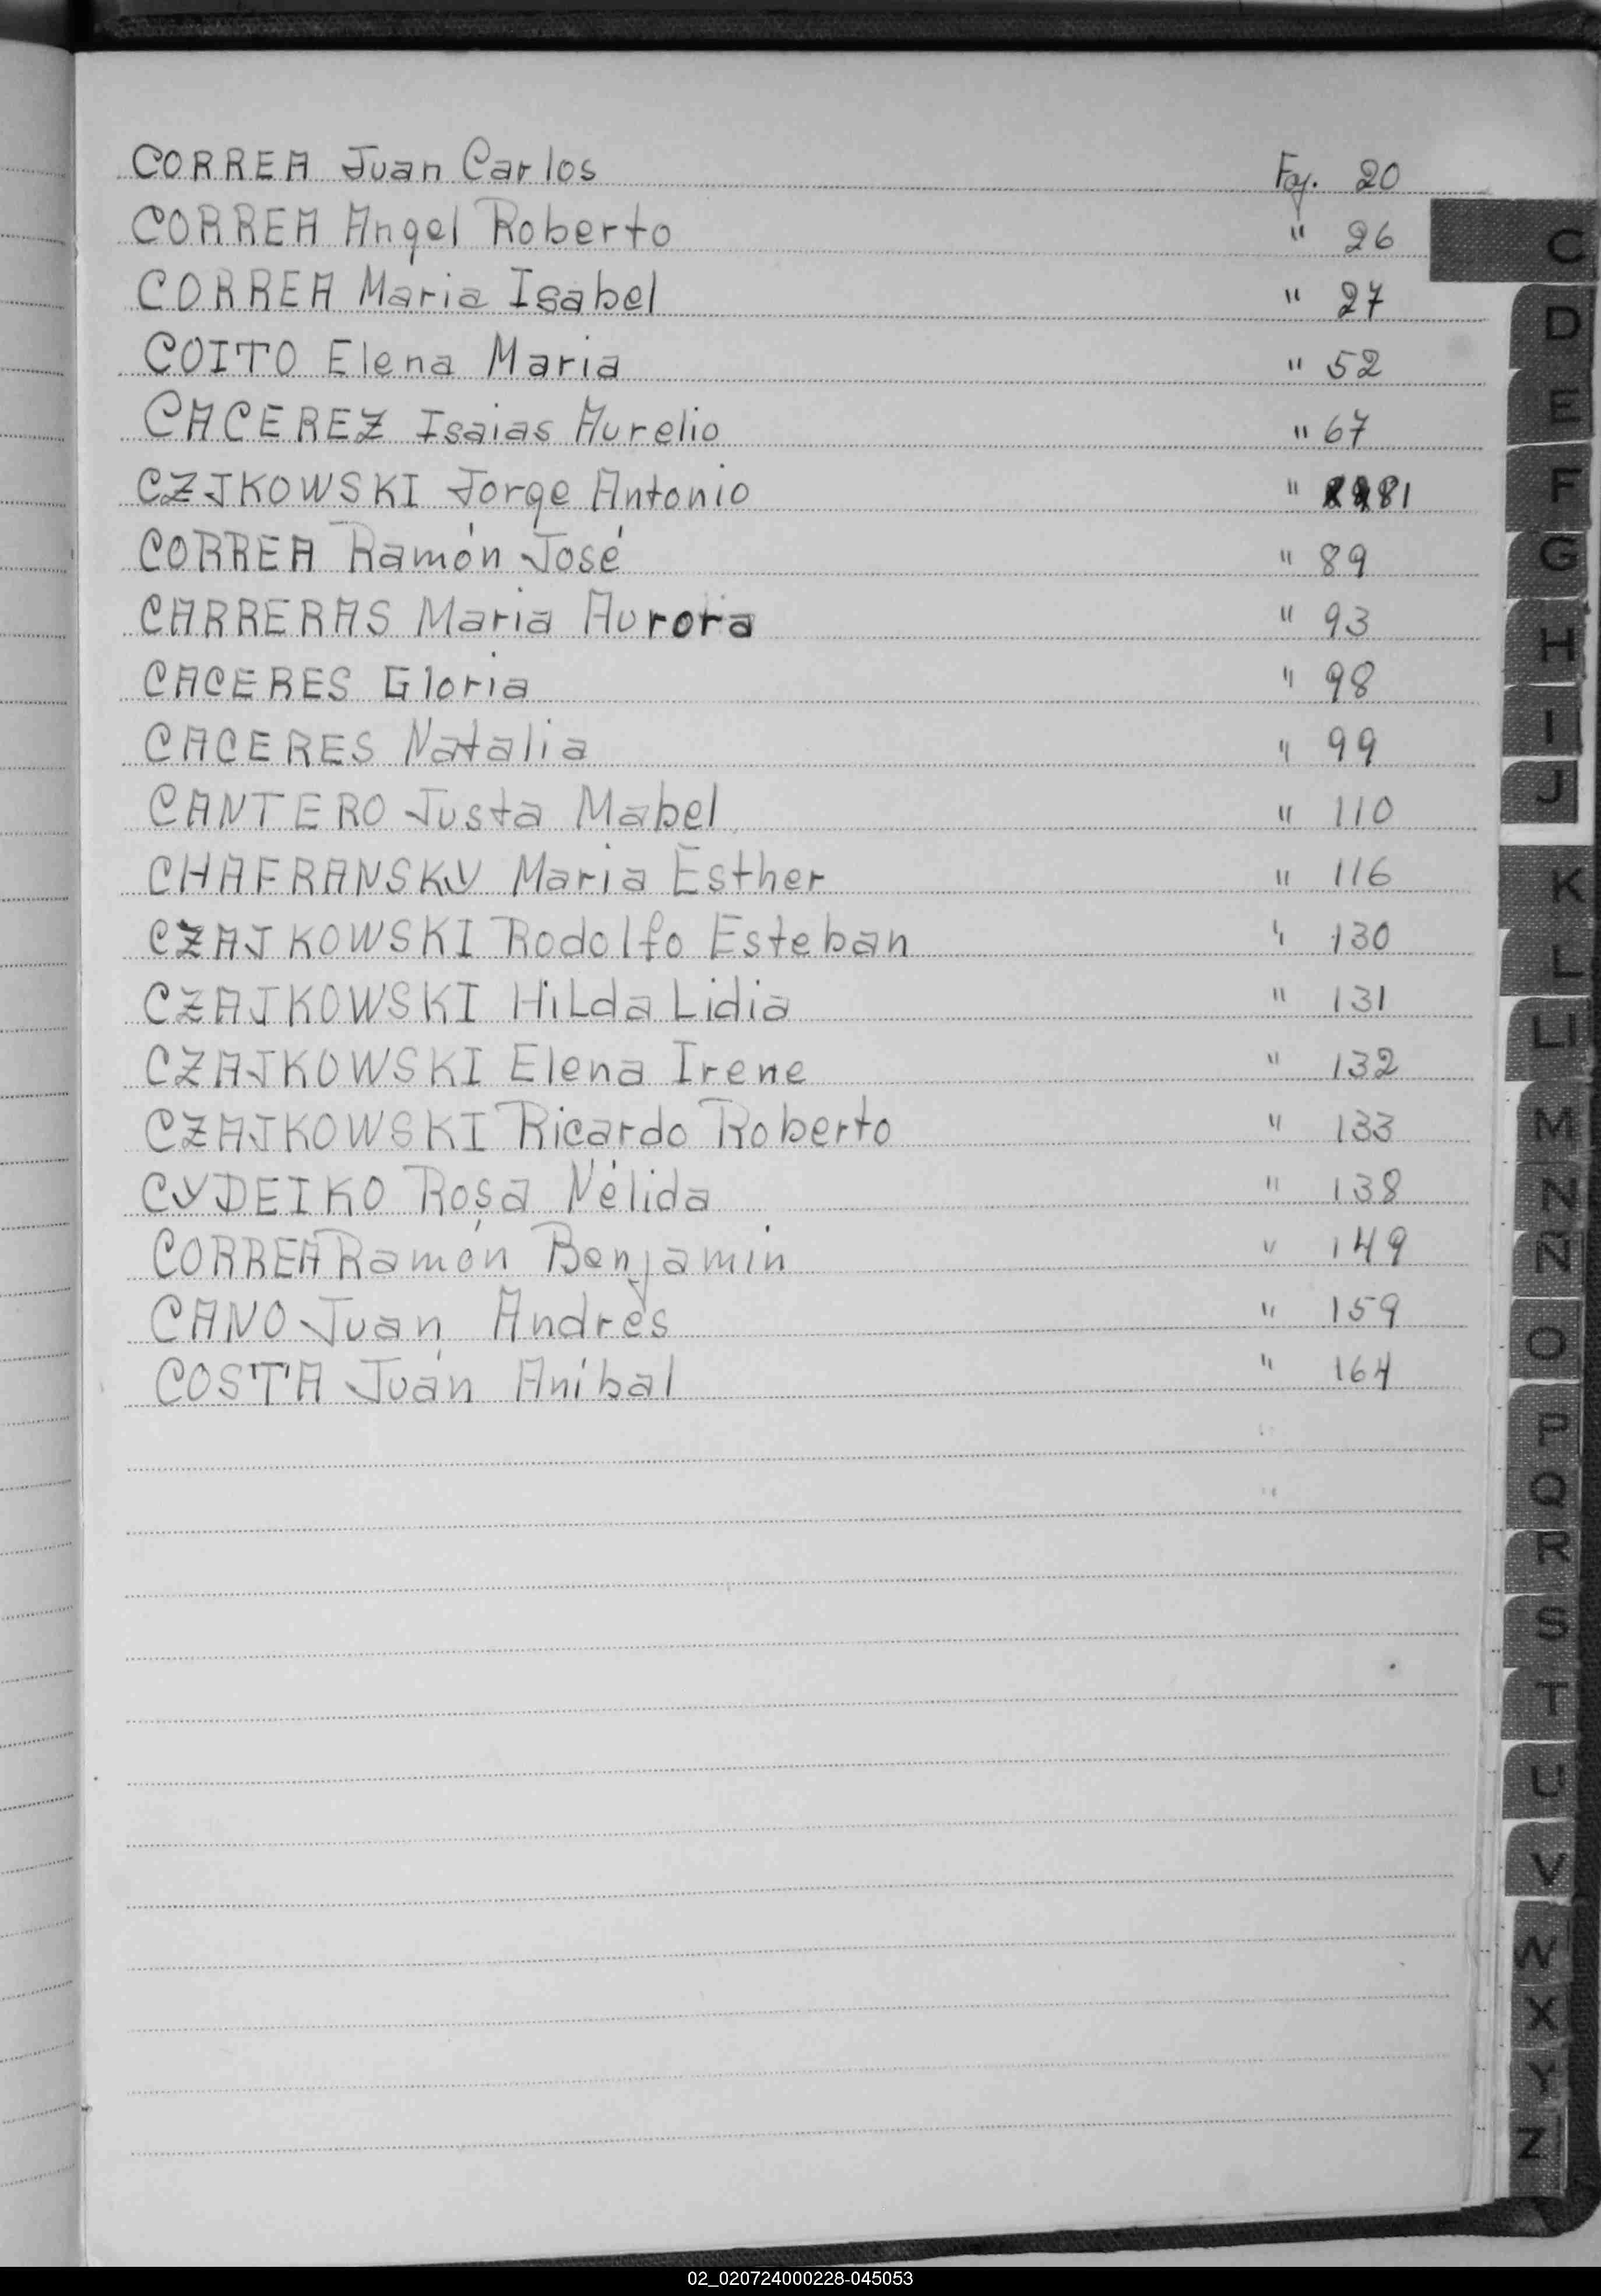 CORREA Juan Carlos Foj. 20
CORREA Angel Roberto " 26
CORREA Maria Isabel " 27
COITO Elena Maria " 52
CACEREZ Isaias Aurelio " 67
CZJKOWSKI Jorge Antonio " 81
CORREA Ramón José " 89
CARRERAS Maria Aurora " 93
CACERES Gloria " 98
CACERES Natalia " 99
CANTERO Justa Mabel " 110
CHAFRANSKY Maria Esther " 116
CZAJKOWSKI Rodolfo Esteban " 130
CZAJKOWSKI HiLda Lidia " 131
CZAJKOWSKI Elena Irene " 132
CZAJKOWSKI Ricardo Roberto " 133
CYDEIKO Rosa Nélida " 138
CORREA Ramón Benjamin " 149
CANO Juan Andrés " 159
COSTA Juan Anibal " 164
C
D
E
F
G
H
I
J
K
L
Ll
M
N
Ñ
O
P
Q
R
S
T
U
V
W
X
Y
Z
02_020724000228-045053